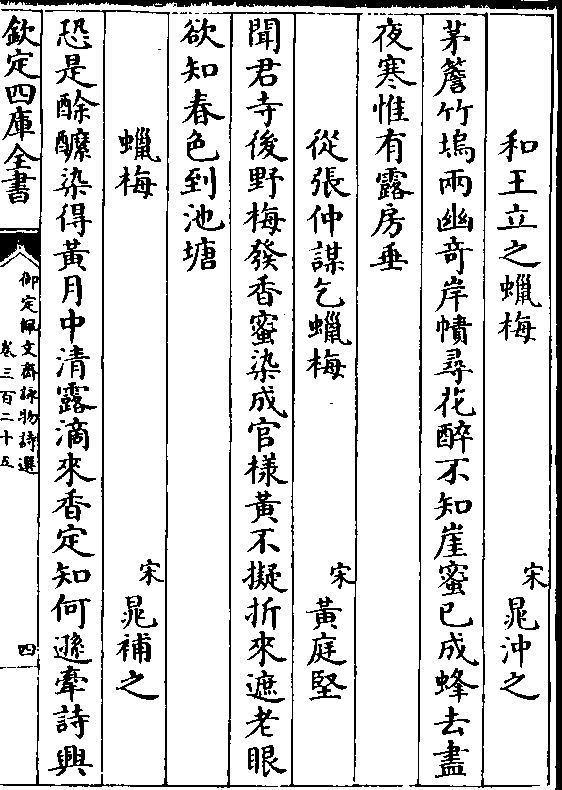 和王立之蠟梅　宋　晁沖之
茅簷竹塢兩幽竒岸幘尋花醉不知崖蜜已成蜂去盡
夜寒惟有露房垂
從張仲謀乞蠟梅　宋　黃庭堅
聞君寺後野梅發香蜜染成官様黃不擬折來遮老眼
欲知春色到池塘
蠟梅　宋　晁補之
恐是酴醿染得黃月中清露滴來香定知何遜牽詩興
欽定四庫全書
御定佩文齋詠物詩選
卷三百二十五
四